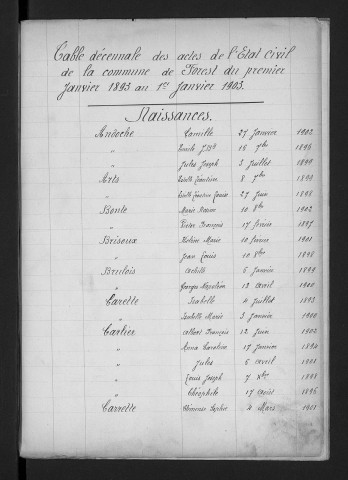 Table décennale des actes de l'Etat civil
de la commune de Forest du premier
Janvier 1893 au 1er Janvier 1903.
Naissances.
Andoche Camille 27 Janvier 1902
" Emile J.Bte 18 7bre 1896
" Jules Joseph 3 Juillet 1899
Arts 8 7bre 1899
" Louise 27 Juin 1898
Bonte Marie 10 8bre 1902
" Victor François 17 février 1897
Briseux Marie 10 février 1901
" Jean Louis 10 8bre 1898
Brulois Achille 6 Janvier 1899
" Georges Napoléon 12 Avril 1900
Carette Isabelle 4 Juillet 1893
" Isabelle Marie 3 Janvier 1900
Cartier Albert François 12 Juin 1902
" Anna Caroline 17 Janvier 1894
" Jules 6 Avril 1901
" Louis Joseph 7 Xbre
" Théophile 17 Août 1896
Carrette Clémence 4 Mars 1901